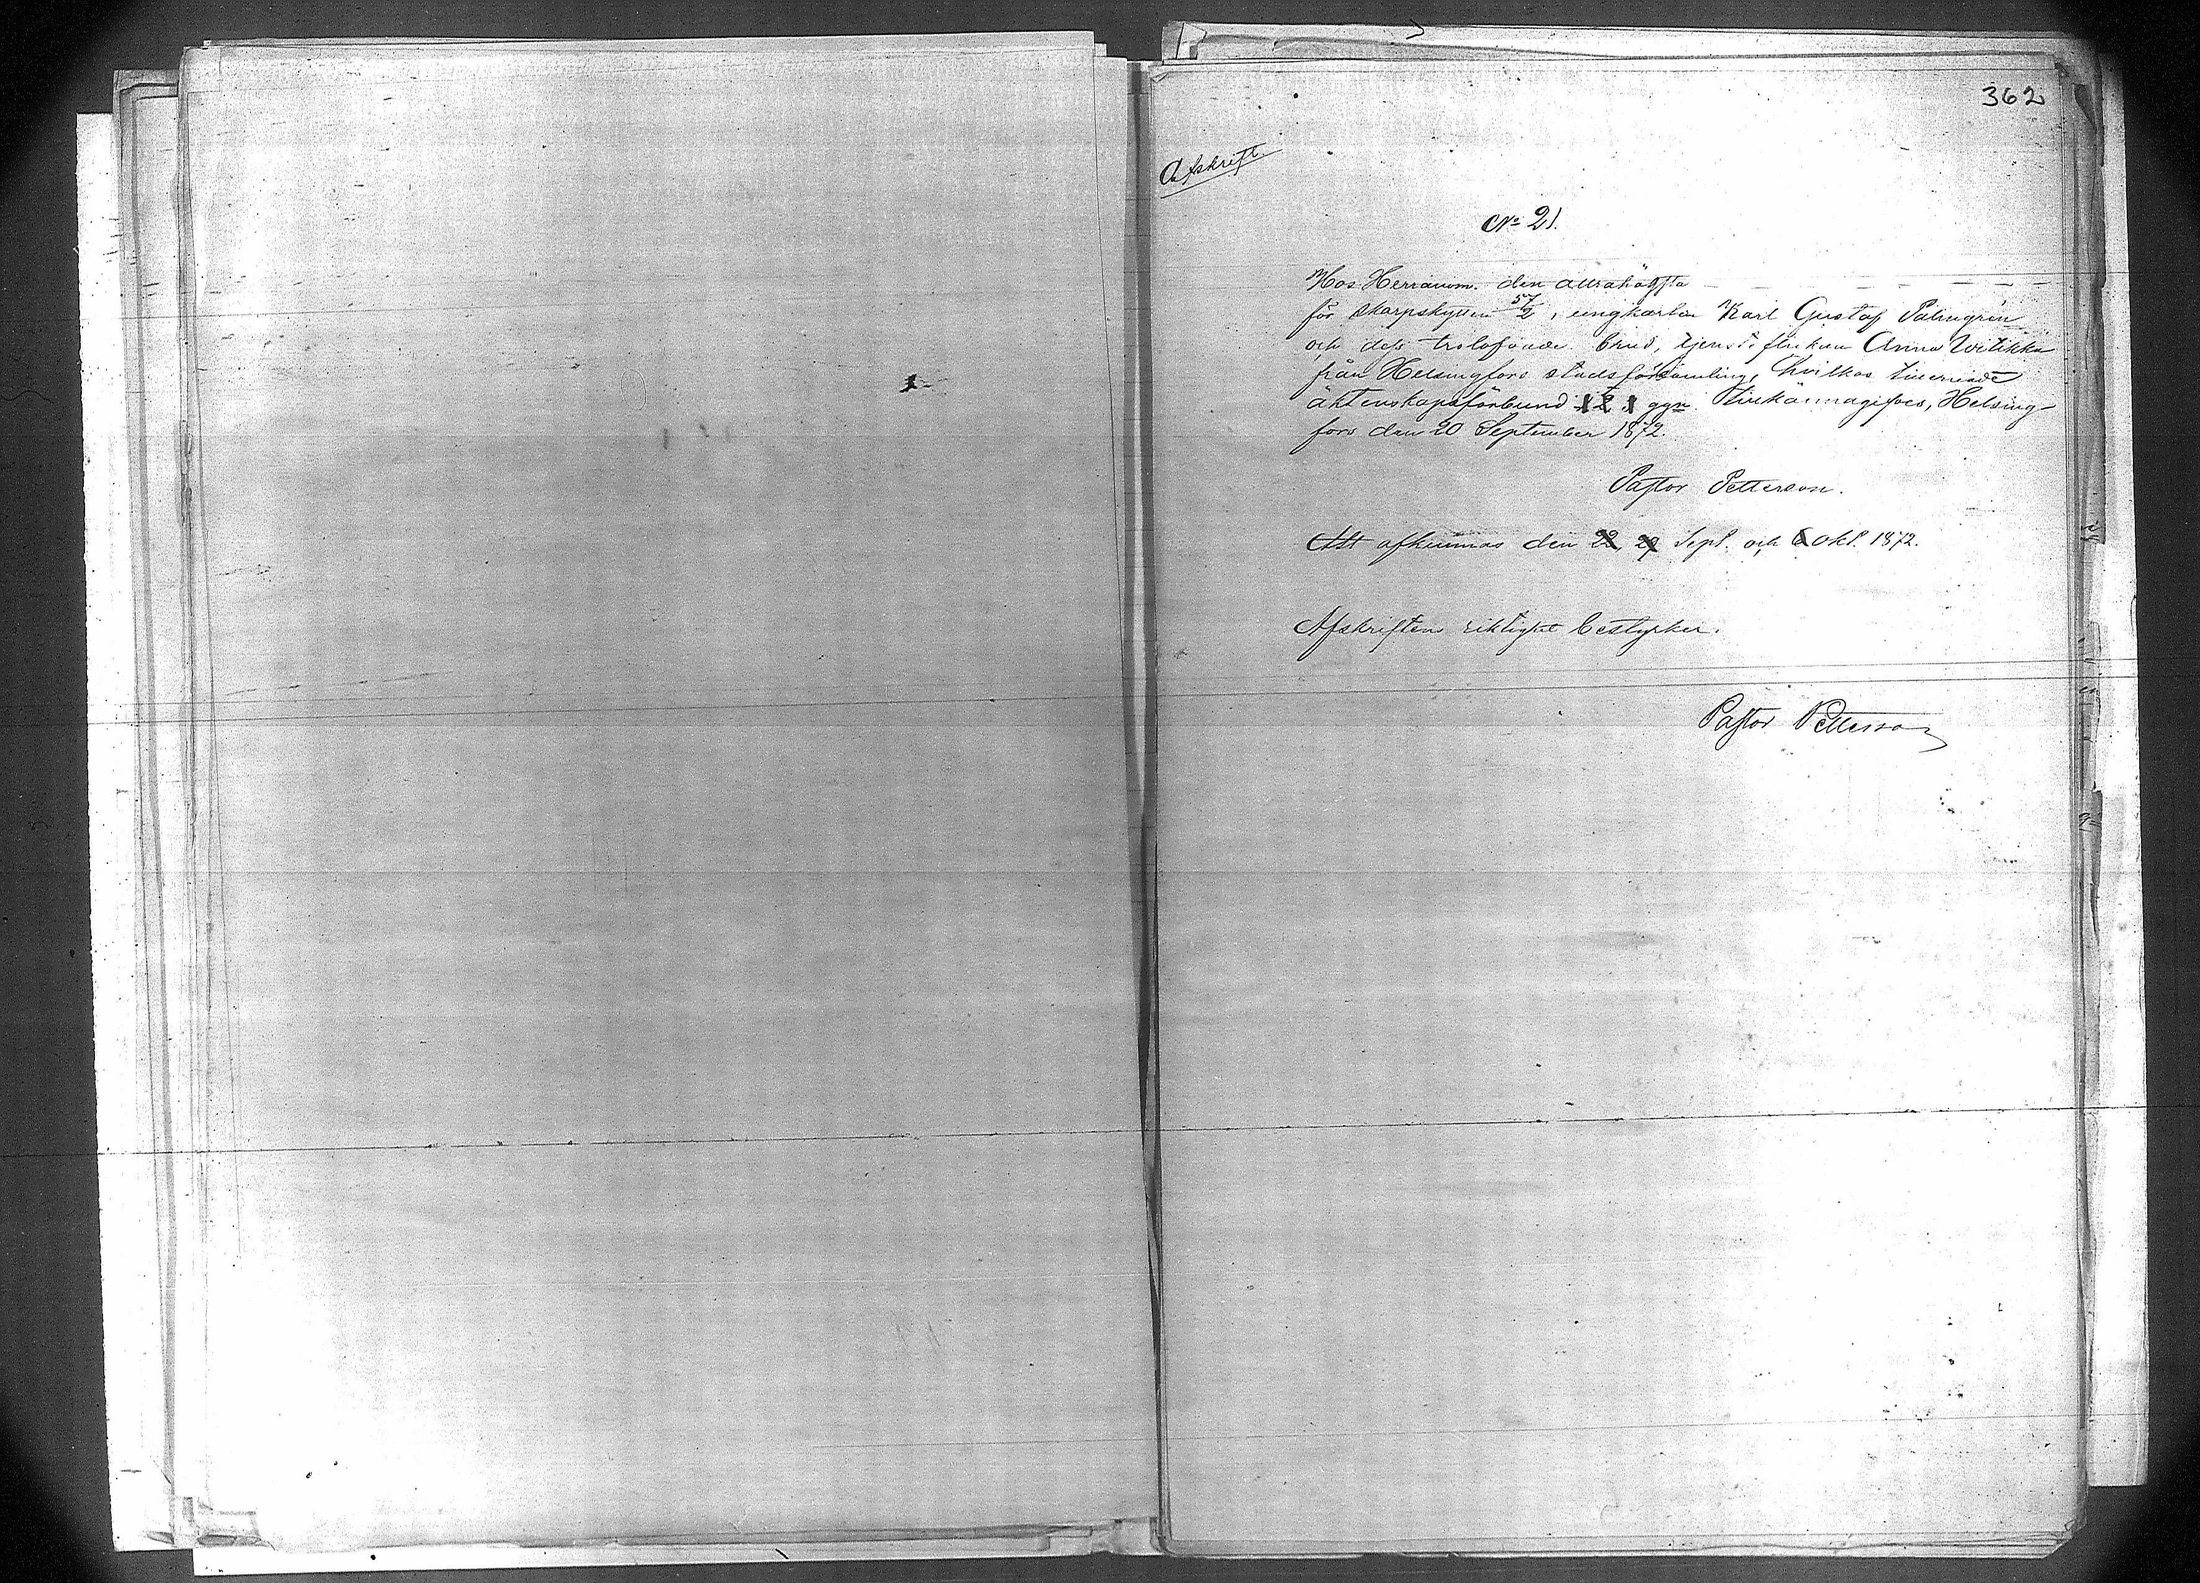 362
Afskrift.
No 21.
Hos Herranom den allrahögsta
för skarpskytten 57/2, ungkarlen Karl Gustaf Palmgrén
och dess trolofvade brud, tjensteflickan Anna Witikka
från Helsingfors stadsförsamling, hvilkas tillernade
äktenskapsförbund 1 2 3 ggn tillkännagifves, Helsing-
fors den 20 September 1872.
Pastor Petterson.
Att afkunnas den 22, 29 Sept. och 6 Okt. 1872.
Afskriftens riktighet bestyrker.
Pastor Petterson